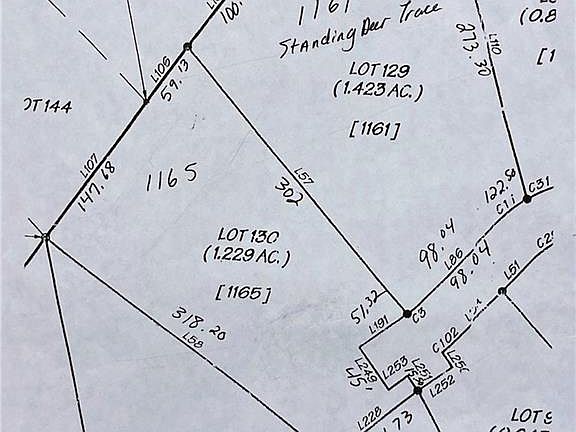 100.
1161
Standing Deer Trace
(0.8
L110
273.30
[1
L106
59.13
LOT 129
(1.423 AC.)
[1161]
OT 144
L107
147.68
1165
L57
302
122.50
C31
98.04
L86
98.04
LOT 130
(1.229 AC.)
[1165]
L51
51.32
C3
L191
318.20
L58
C102
L249
45'
L253
L251
L252
L228
LOT 9